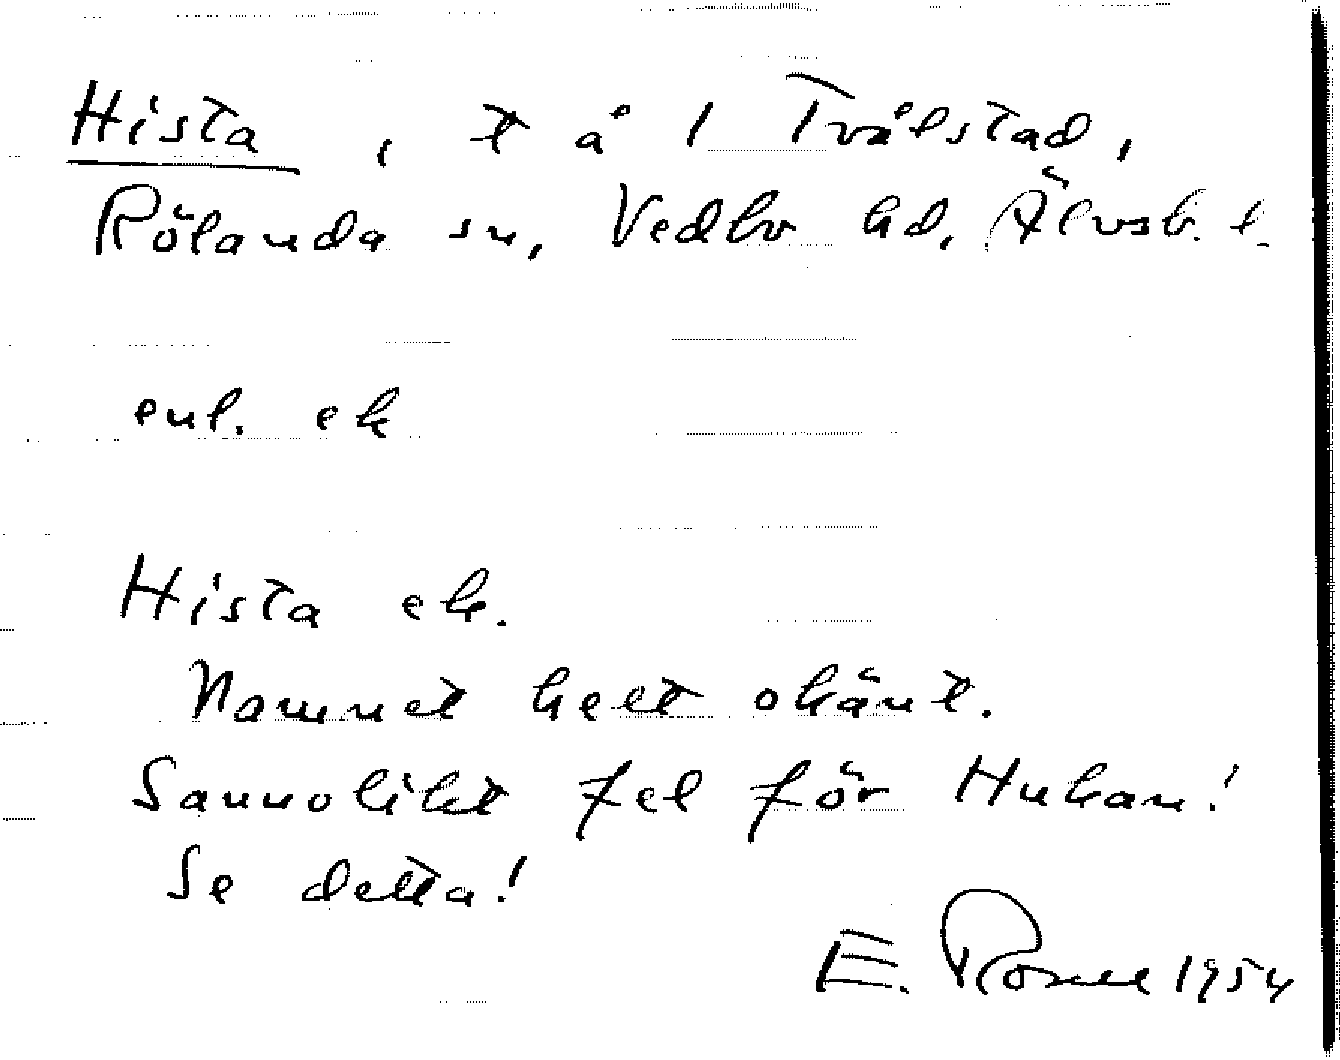 Hista, t å 1 Tvålstad,
Rölanda sn, Vedbo hd, Älvsb. l.
enl. ek
Hista ek.
Namnet helt okänt.
Sannolikt fel för Hukan!
Se detta!
E. 1954